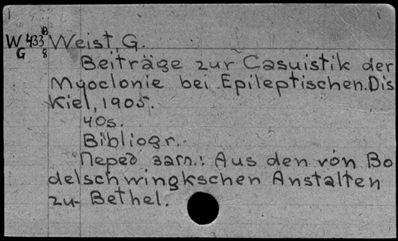 W 433 B Weist G.
G 8 Beiträge zur Casuistik der
Myoclonie bei Epileptischen. Dis
Kiel, 1905.
40s.
Bibliogr.
Перед загл.: Aus den von Bo
delschwingkschen Anstalten
zu Bethel.